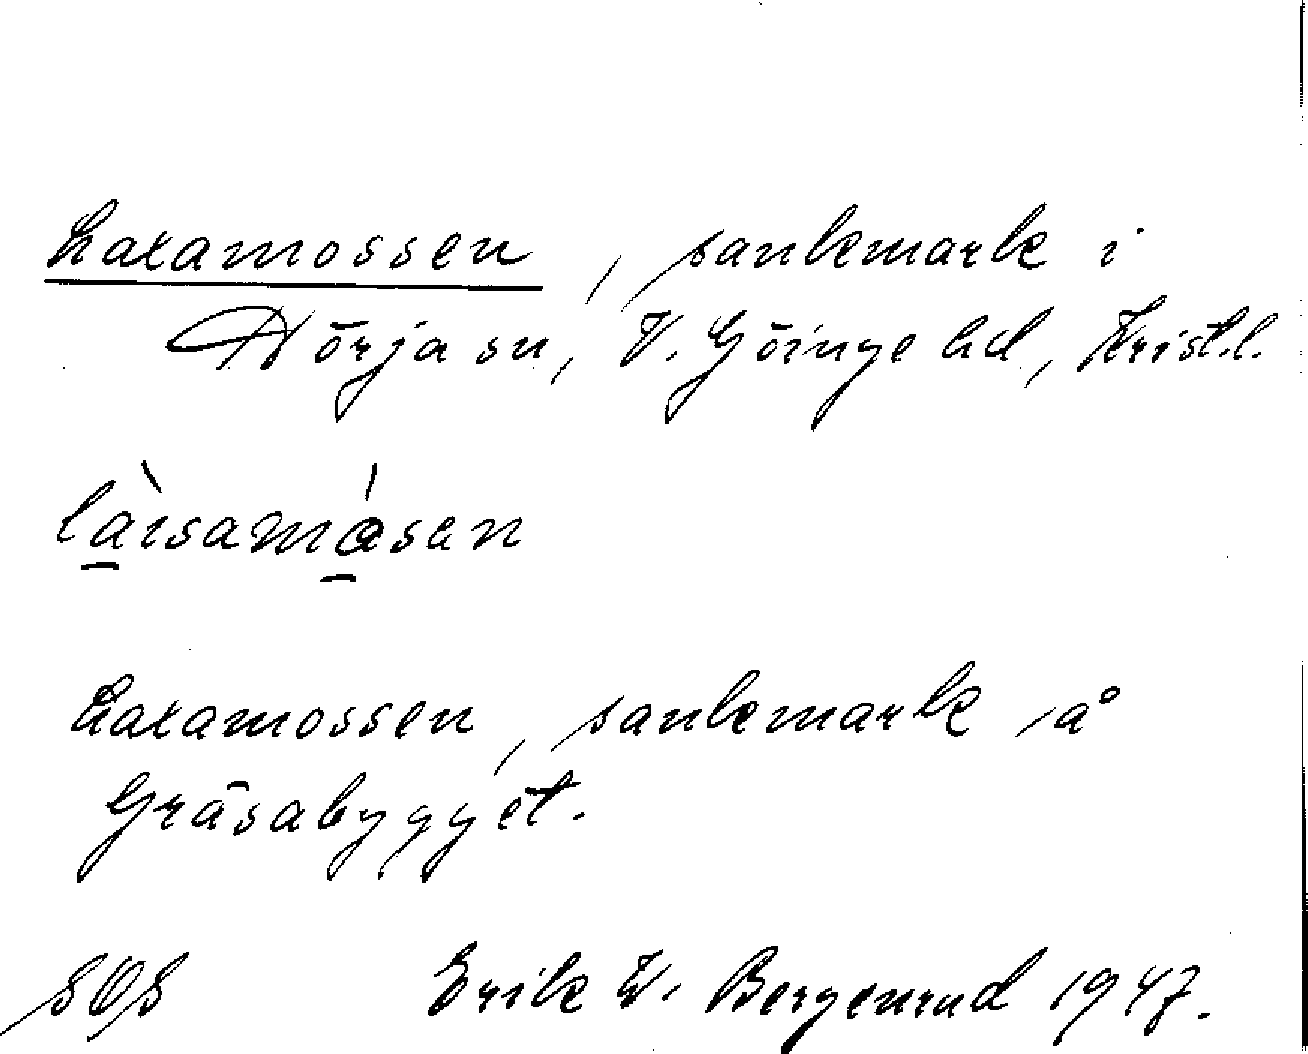 Laxamossen, sankmark i
Nörja sn, V. Göinge hd, Krist.l.
làisamåsen
Laxamossen, sankmark å
Gräsabygget.
SOS Erik W. Bergenrud 1947.